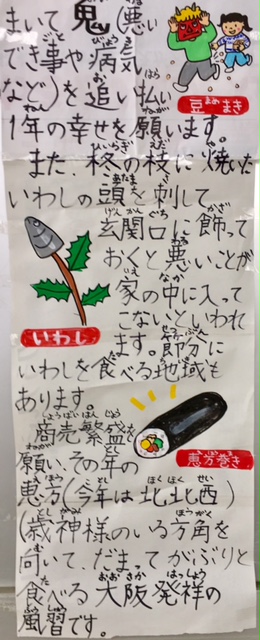 まいて鬼(悪い
でき事や病気
など)を追い払い
豆まき
1年の幸せを願います。
また、柊の枝に焼いた
いわしの頭を刺して
玄関口に飾って
おくと悪いことが
家の中に入って
こないといわれ
いわし
ます。節分に
いわしを食べる地域も
あります。
商売繁盛を
恵方巻き
願い、その年の
恵方(今年は北北西)
(歳神様のいる方角を
向いて、だまってがぶりと
食べる大阪発祥の
風習です。